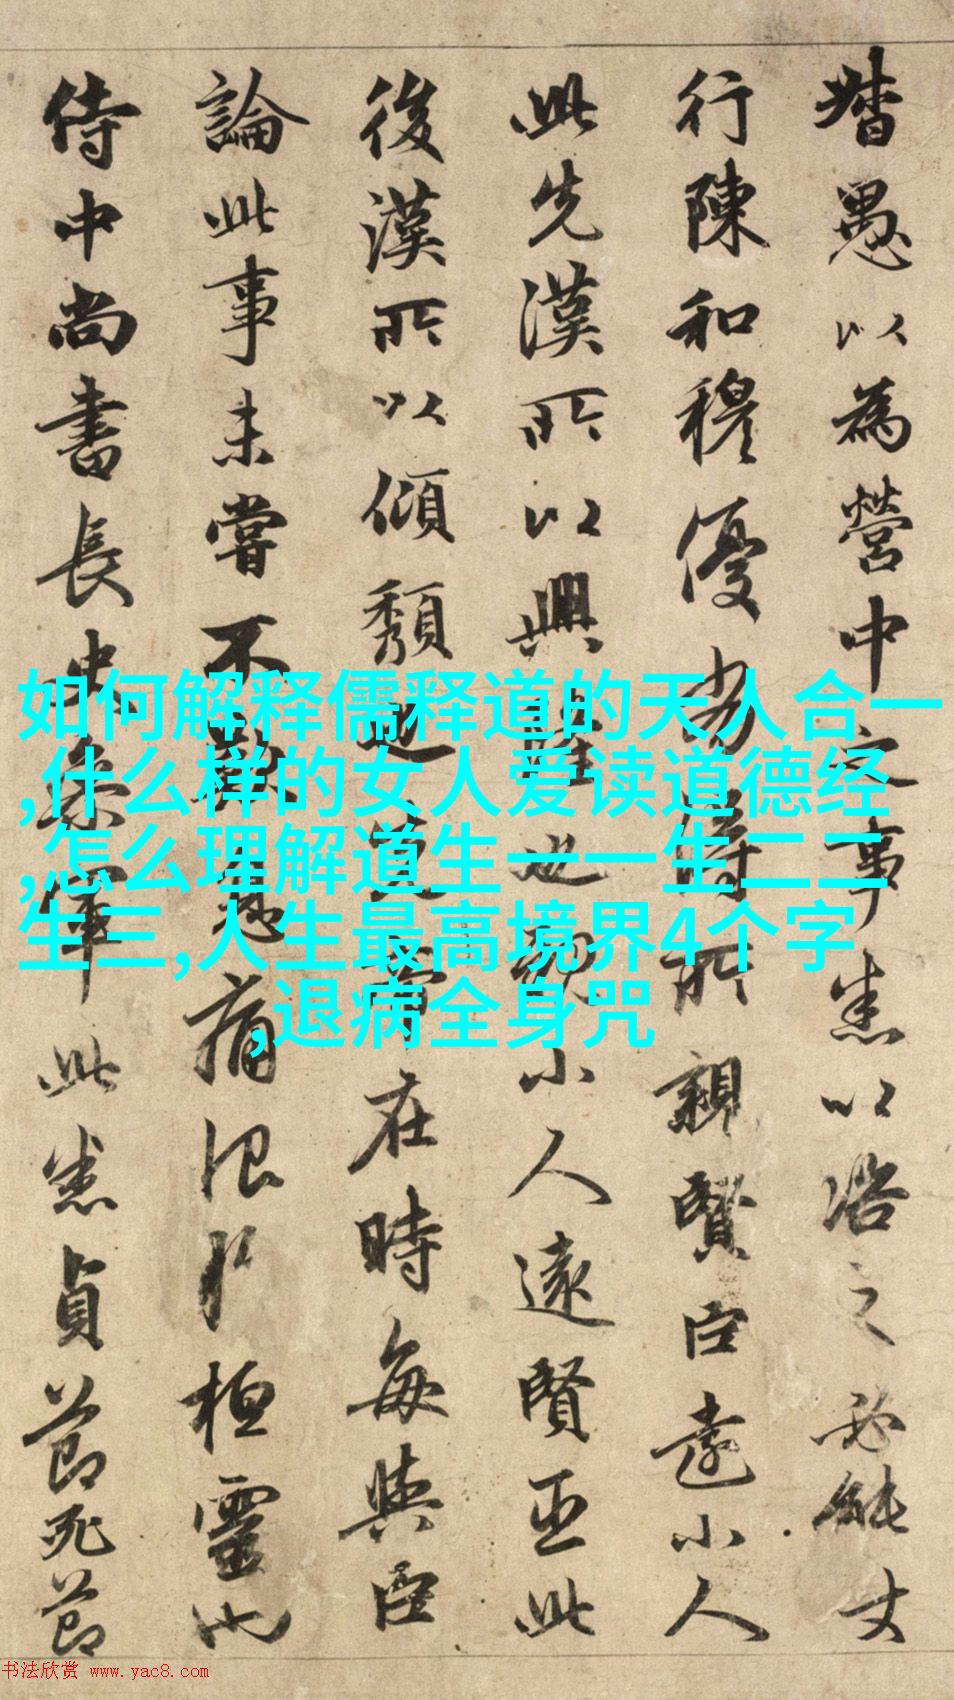 督愚以為營中之事悉以諮之必能使
行陳和穆優劣得所親賢臣遠小人
此先漢所以興隆也親小人遠賢臣此
後漢所以傾頹也先帝在時每與臣
論此事未嘗不歎息痛恨於桓靈也
侍中尚書長史參軍此悉貞節死節
如何解释儒释道的天人合一
,什么样的女人爱读道德经
,怎么理解道生一一生二二
生三,人生最高境界4个字
,退病全身咒
书法欣赏 www.yac8.com